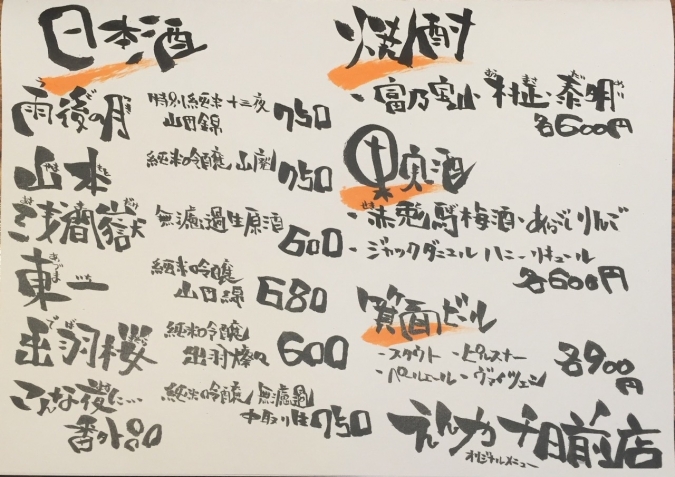 日本酒
雨後の月 特別純米 十三夜 山田錦 750
山本 純米吟醸 山廃 750
浅間嶽 無濾過生原酒 600
東一 純米吟醸 山田錦 680
出羽桜 純米吟醸 出羽燦々 600
こんな夜に… 番外品 純米吟醸 無濾過 中取り生 750
焼酎
・富乃宝山・村正・泰明 各600円
果実酒
・赤兎馬梅酒・あらごしりんご
・ジャックダニエル ハニーリキュール
各600円
箕面ビール
・スタウト ・ピルスナー
・ペールエール ・ヴァイツェン
各900円
千日前店
オリジナルメニュー